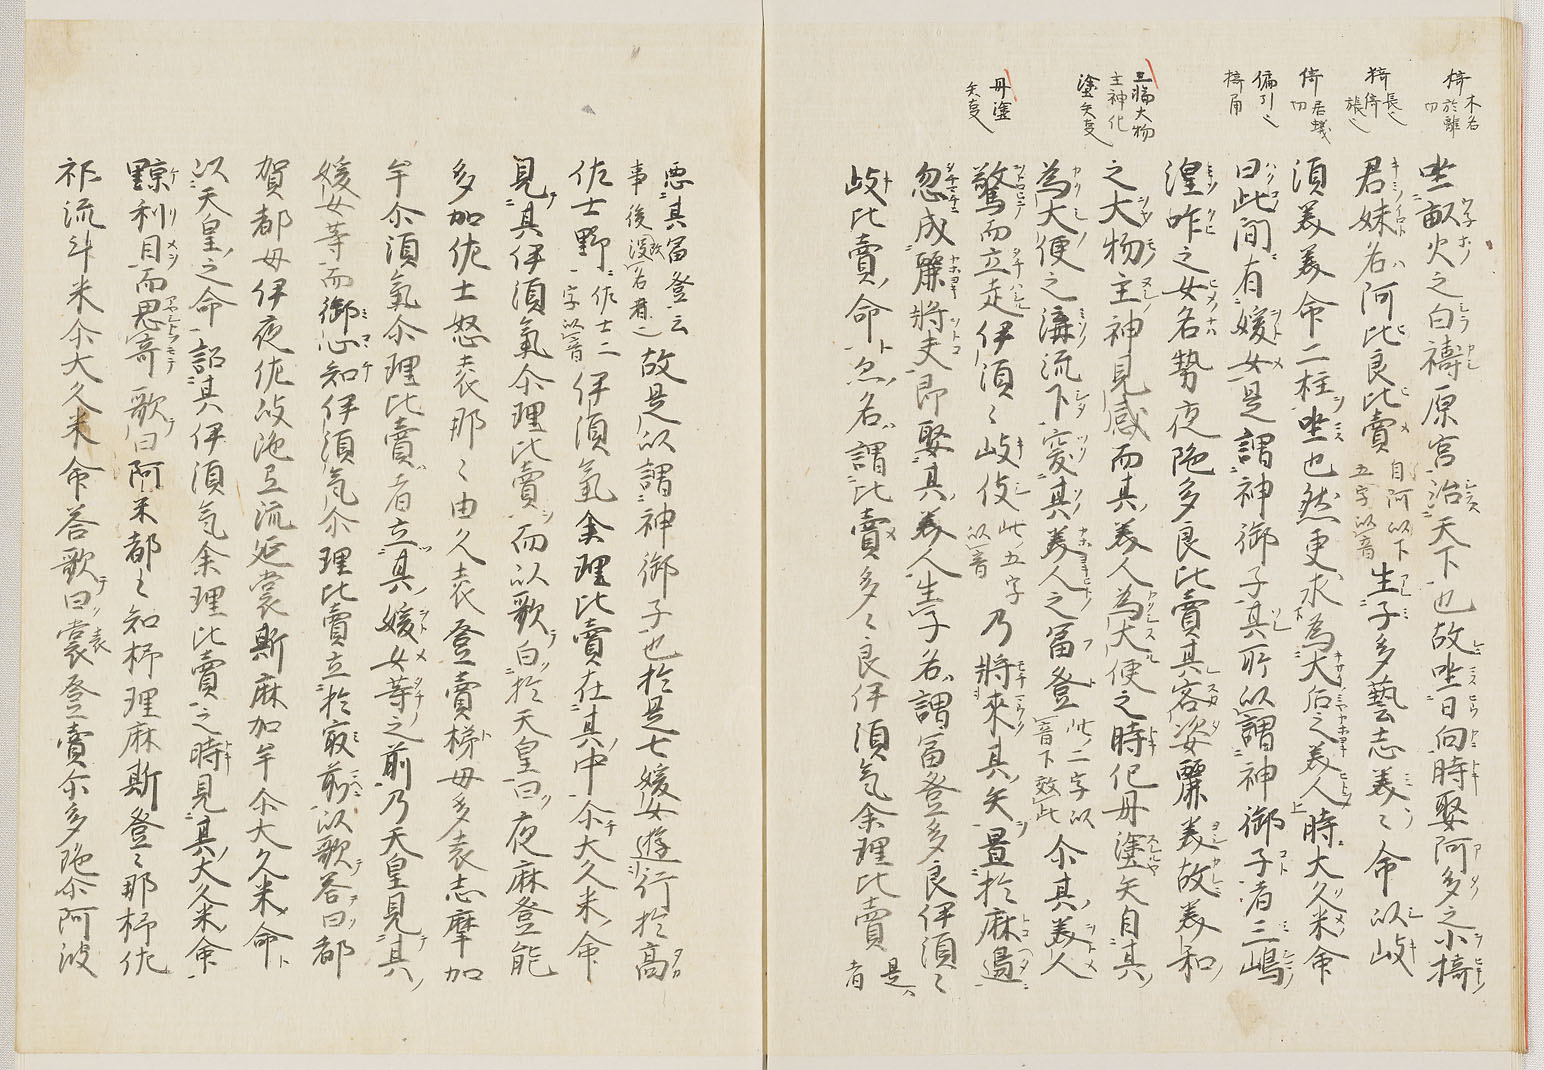 坐畝火之白檮原宮治天下也故坐日向時娶阿多之小椅
君妹名阿比良比賣自阿以下五字以音生子多藝志美々命以岐
須美美命二柱坐也然更求為大后之美人時大久米命
曰此間有媛女是謂神御子其所以謂神御子者三嶋
湟咋之女名勢夜陁多良比賣其容姿麗美故美和
之大物主神見感而其美人為大便之時化丹塗矢自其
為大便之溝流下突其美人之冨登此二字以音下效此尒其美人
驚而立走伊須々岐伎此五字以音乃將來其矢置於床邊
忽成麗將夫即娶其美人生子名謂冨登多良伊須々
岐比賣命亦名謂比賣多々良伊須气余理比賣是者
悪其冨登云事後改名者也故是以謂神御子也於是七媛女遊行於高
佐士野佐士二字以音伊須氣余理比賣在其中尒大久米命
見其伊須氣余理比賣而以歌白於天皇曰夜麻登能
多加佐士怒袁那々由久袁登賣杼母多袁志摩加
牟尒須氣余理比賣者立其媛女等之前乃天皇見其
媛女等而御心知伊須气余理比賣立於㝡前以歌答曰都
賀都母伊夜佐岐陁弖流延袁斯麻加牟尒大久米命
以天皇之命詔其伊須气余理比賣之時見其大久米命
黥利目而思奇歌曰阿米都々知杼理麻斯登々那杼佐
祁流斗米尒大久米命答歌曰袁登賣尒多陁尒阿波
椅 木名 於離切
猗 長也 倚 旅也
倚 居蟻切
偏引也 椅角
三輪大物主神化塗矢㕝
丹塗矢㕝